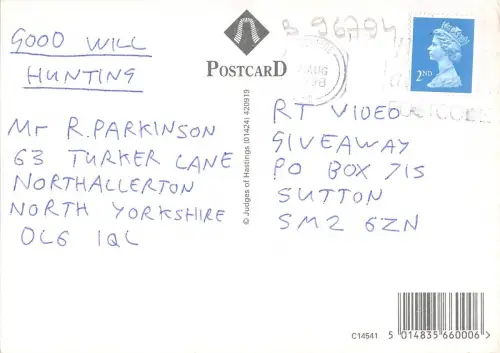 GOOD WILL
HUNTING
Mr R. PARKINSON
63 TURKER LANE
NORTHALLERTON
NORTH YORKSHIRE
OL6 1QL
POSTCARD
© Judges of Hastings (01424) 420919
B 96794
AUG
2ND
RT VIDEO
GIVEAWAY
PO BOX 715
SUTTON
SM2 6ZN
C14541
5 014835 660006 >